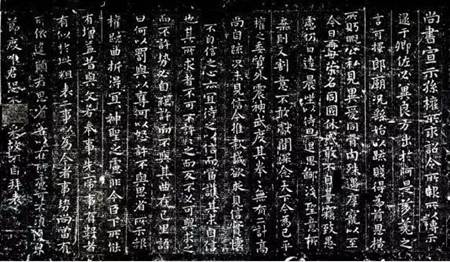 尚書宣示孫權所求詔令所報所以博示
逮于卿佐必冀良方出於阿是芻蕘之
言可擇郎廟況繇始以疏賤得為前恩橫
所盼睨公私見異愛同骨肉殊遇厚寵以至
今日再世榮名同國休慼敢不自量竊致愚
慮仍日達晨坐以待旦退思鄙淺聖意所棄
則又割意不敢獻聞深念天下今為已平
權之委質外震神武度其拳拳無有二計高
尚自疏況未見信今推款誠欲求見信實懷
不自信之心亦宜待之以信而當護其未自信
也其所求者不可不許許之而反不必可與求之
而不許勢必自絕許而不與其曲在己里語
曰何以罰與以奪何以怒許不與思省所示報
權疏曲折得宜宜神聖之慮非今臣下所能
有增益昔與文若奉事先帝事有數者
有似於此粗表二事以為今者事勢尚當有
所依違願君思省若以在所慮可不須復貌
節度唯君恐不可采故不自拜表